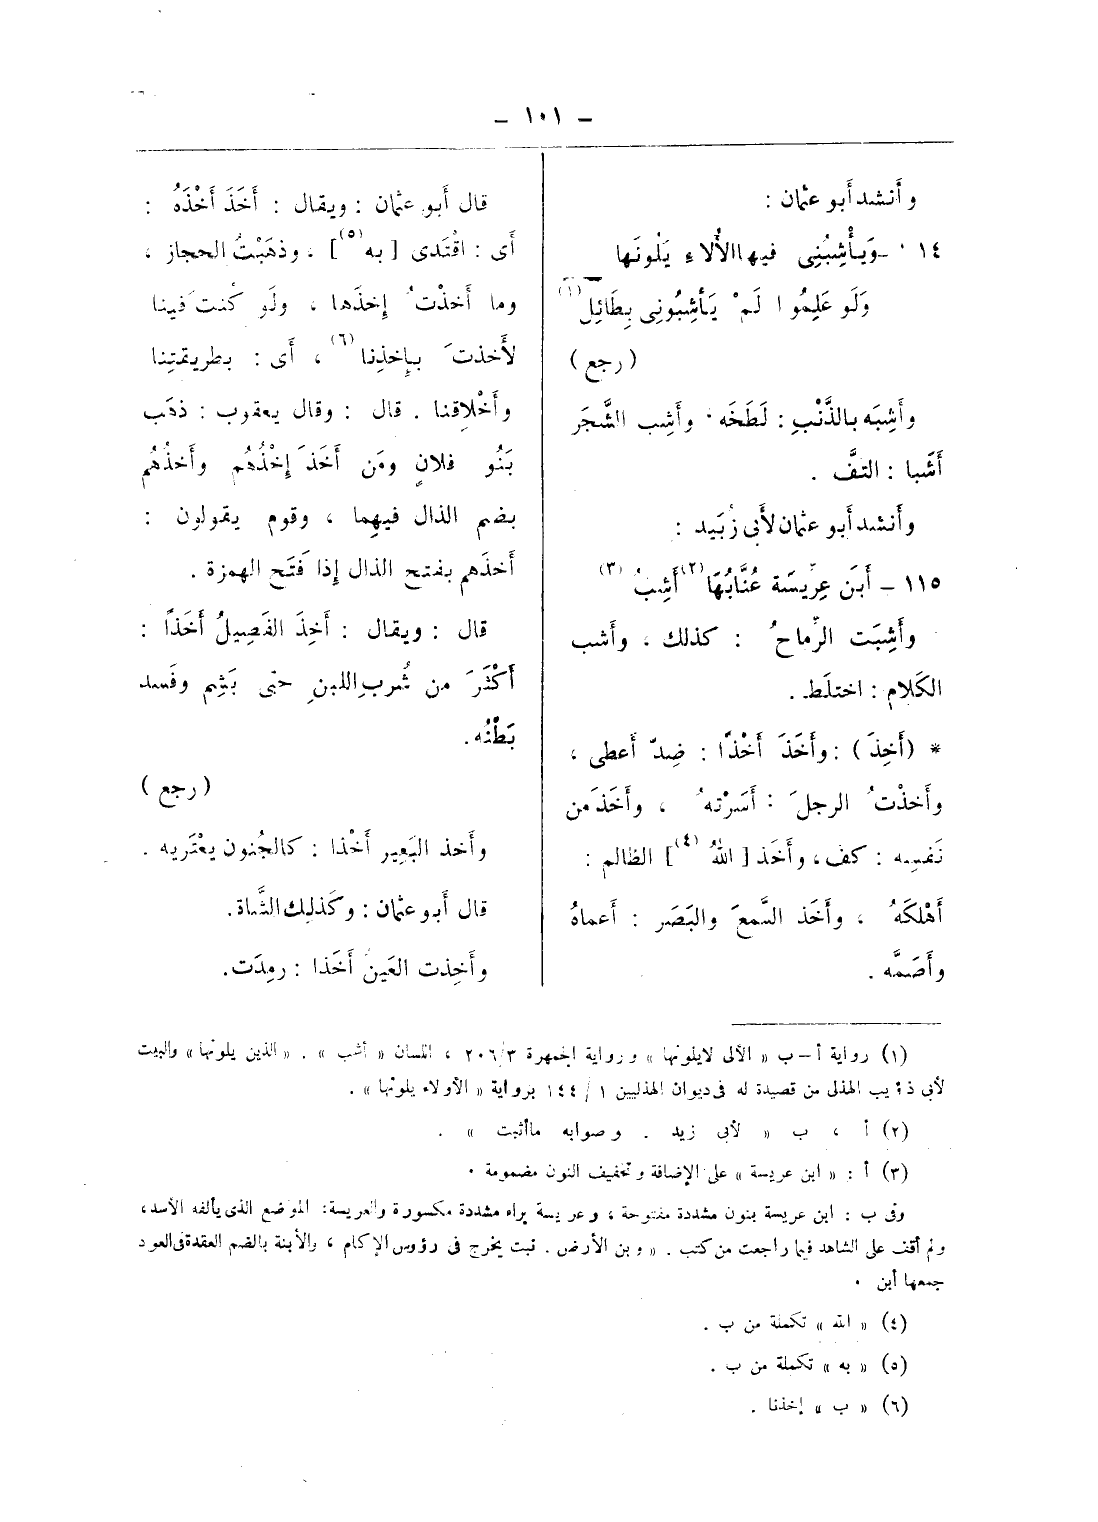 – ١٠١ –
وأَنشد أَبو عثمان :
١٤ - وَيَأْشِبُنِى فيها الأُلاءِ يَلُونَها
وَلَو عَلِمُوا لَمْ يَأشِبُونِى بِطَائِلِ(١)
( رجع )
وأَشِبَه بالذَّنْبِ : لَطَخَه ، وأَشِب الشَّجَر
أَشَبا : التفَّ .
وأَنشد أَبو عثمان لأَبى زُبَيد :
١١٥ – أَبَن عِرِّيسَة عُنَّابُهَا(٢) أَشِبُ (٣)
وأَشِبَت الرِّماحُ : كذلك ، وأَشب
الكَلام : اختلَط .
* (أَخِذَ ) : وأَخَذَ أَخْذًا : ضِدّ أَعطى ،
وأَخذْتُ الرجلَ : أَسَرْتهُ ، وأَخَذَ من
نَفسِه : كف ، وأَخَذ [ اللهُ (٤) ] الظالم :
أَهْلكَهُ ، وأَخَذ السَّمعَ والبَصَر : أَعماهُ
وأَصَمَّه .
قال أَبو عثمان : ويقال : أَخَذَ أَخْذَهُ :
أَى : اقْتَدى [ به (٥) ] ، وذهَبْتُ الحجاز ،
وما أَخذْتُ إخذَها ، ولَو كُنتَ فينا
لأَخذتَ بإِخذِنا (٦) ، أَى : بطريقتِنا
وأَخْلاقنا . قال : وقال يعقوب : ذهَب
بَنُو فلانٍ ومَن أَخَذَ إِخْذُهُم وأَخذُهُم
بضم الذال فيهِما ، وقوم يقولون :
أَخذَهم بفتح الذال إذا فَتَح الهمزة .
قال : ويقال : أَخِذَ الفَصِيلُ أَخَذًا :
أَكْثَرَ من شُرب اللبنِ حتى بَشِم وفَسد
بَطْنُه .
( رجع )
وأَخذ البَعِير أَخْذا : كالجُنون يعْتَريه .
قال أَبو عثمان : وكَذلِك الشَّاة .
وأَخِذت العَينُ أَخَذا : رمِدَت .
(١) رواية أ – ب « الألى لايلونها » ورواية الجمهرة ٢٠٦/٣ ، اللسان « أشب » . « الذين يلونها » والبيت
لأبى ذؤيب الهذلى من قصيدة له فى ديوان الهذليين ١ / ١٤٤ برواية « الأولاء يلونها » .
(٢) أ ، ب « لأبى زيد . وصوابه ماأثبت » .
(٣) أ : « ابن عريسة » على الإضافة وتخفيف النون مضمومة .
وفى ب : ابن عريسة بنون مشددة مفتوحة ، وعريسة براء مشددة مكسورة والعريسة: الموضع الذى يألفه الأسد ،
ولم أقف على الشاهد فيما راجعت من كتب . « وبن الأرض . نبت يخرج فى رؤوس الإكام ، والأبنة بالضم العقدة فى العود
جمعها أبن .
(٤) « الله » تكملة من ب .
(٥) « به » تكملة من ب .
(٦) « ب » إخذنا .